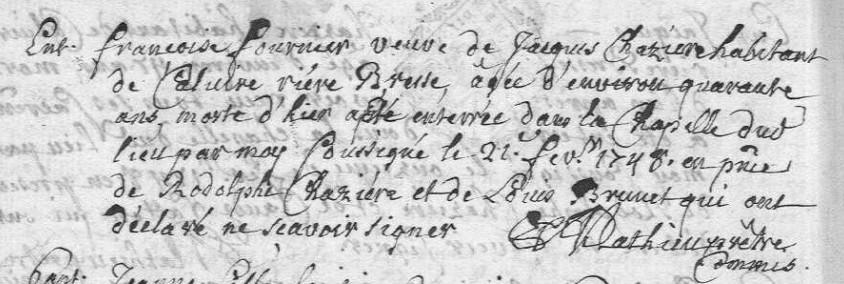 Ent. francoise fournier veuve de Jacques Chaziere habitant
de Caluire riére Bresse, âgée d'environ quarante
ans, morte d'hier a été enterrée dans la Chapelle dud
lieu par moy soussigné le 21e fevr. 1748. en pnce
de Rodolphe Chaziére et de Louis Brunet qui ont
déclaré ne sçavoir signer Mathieu prêtre
Commis.
Bapt. Jeanne